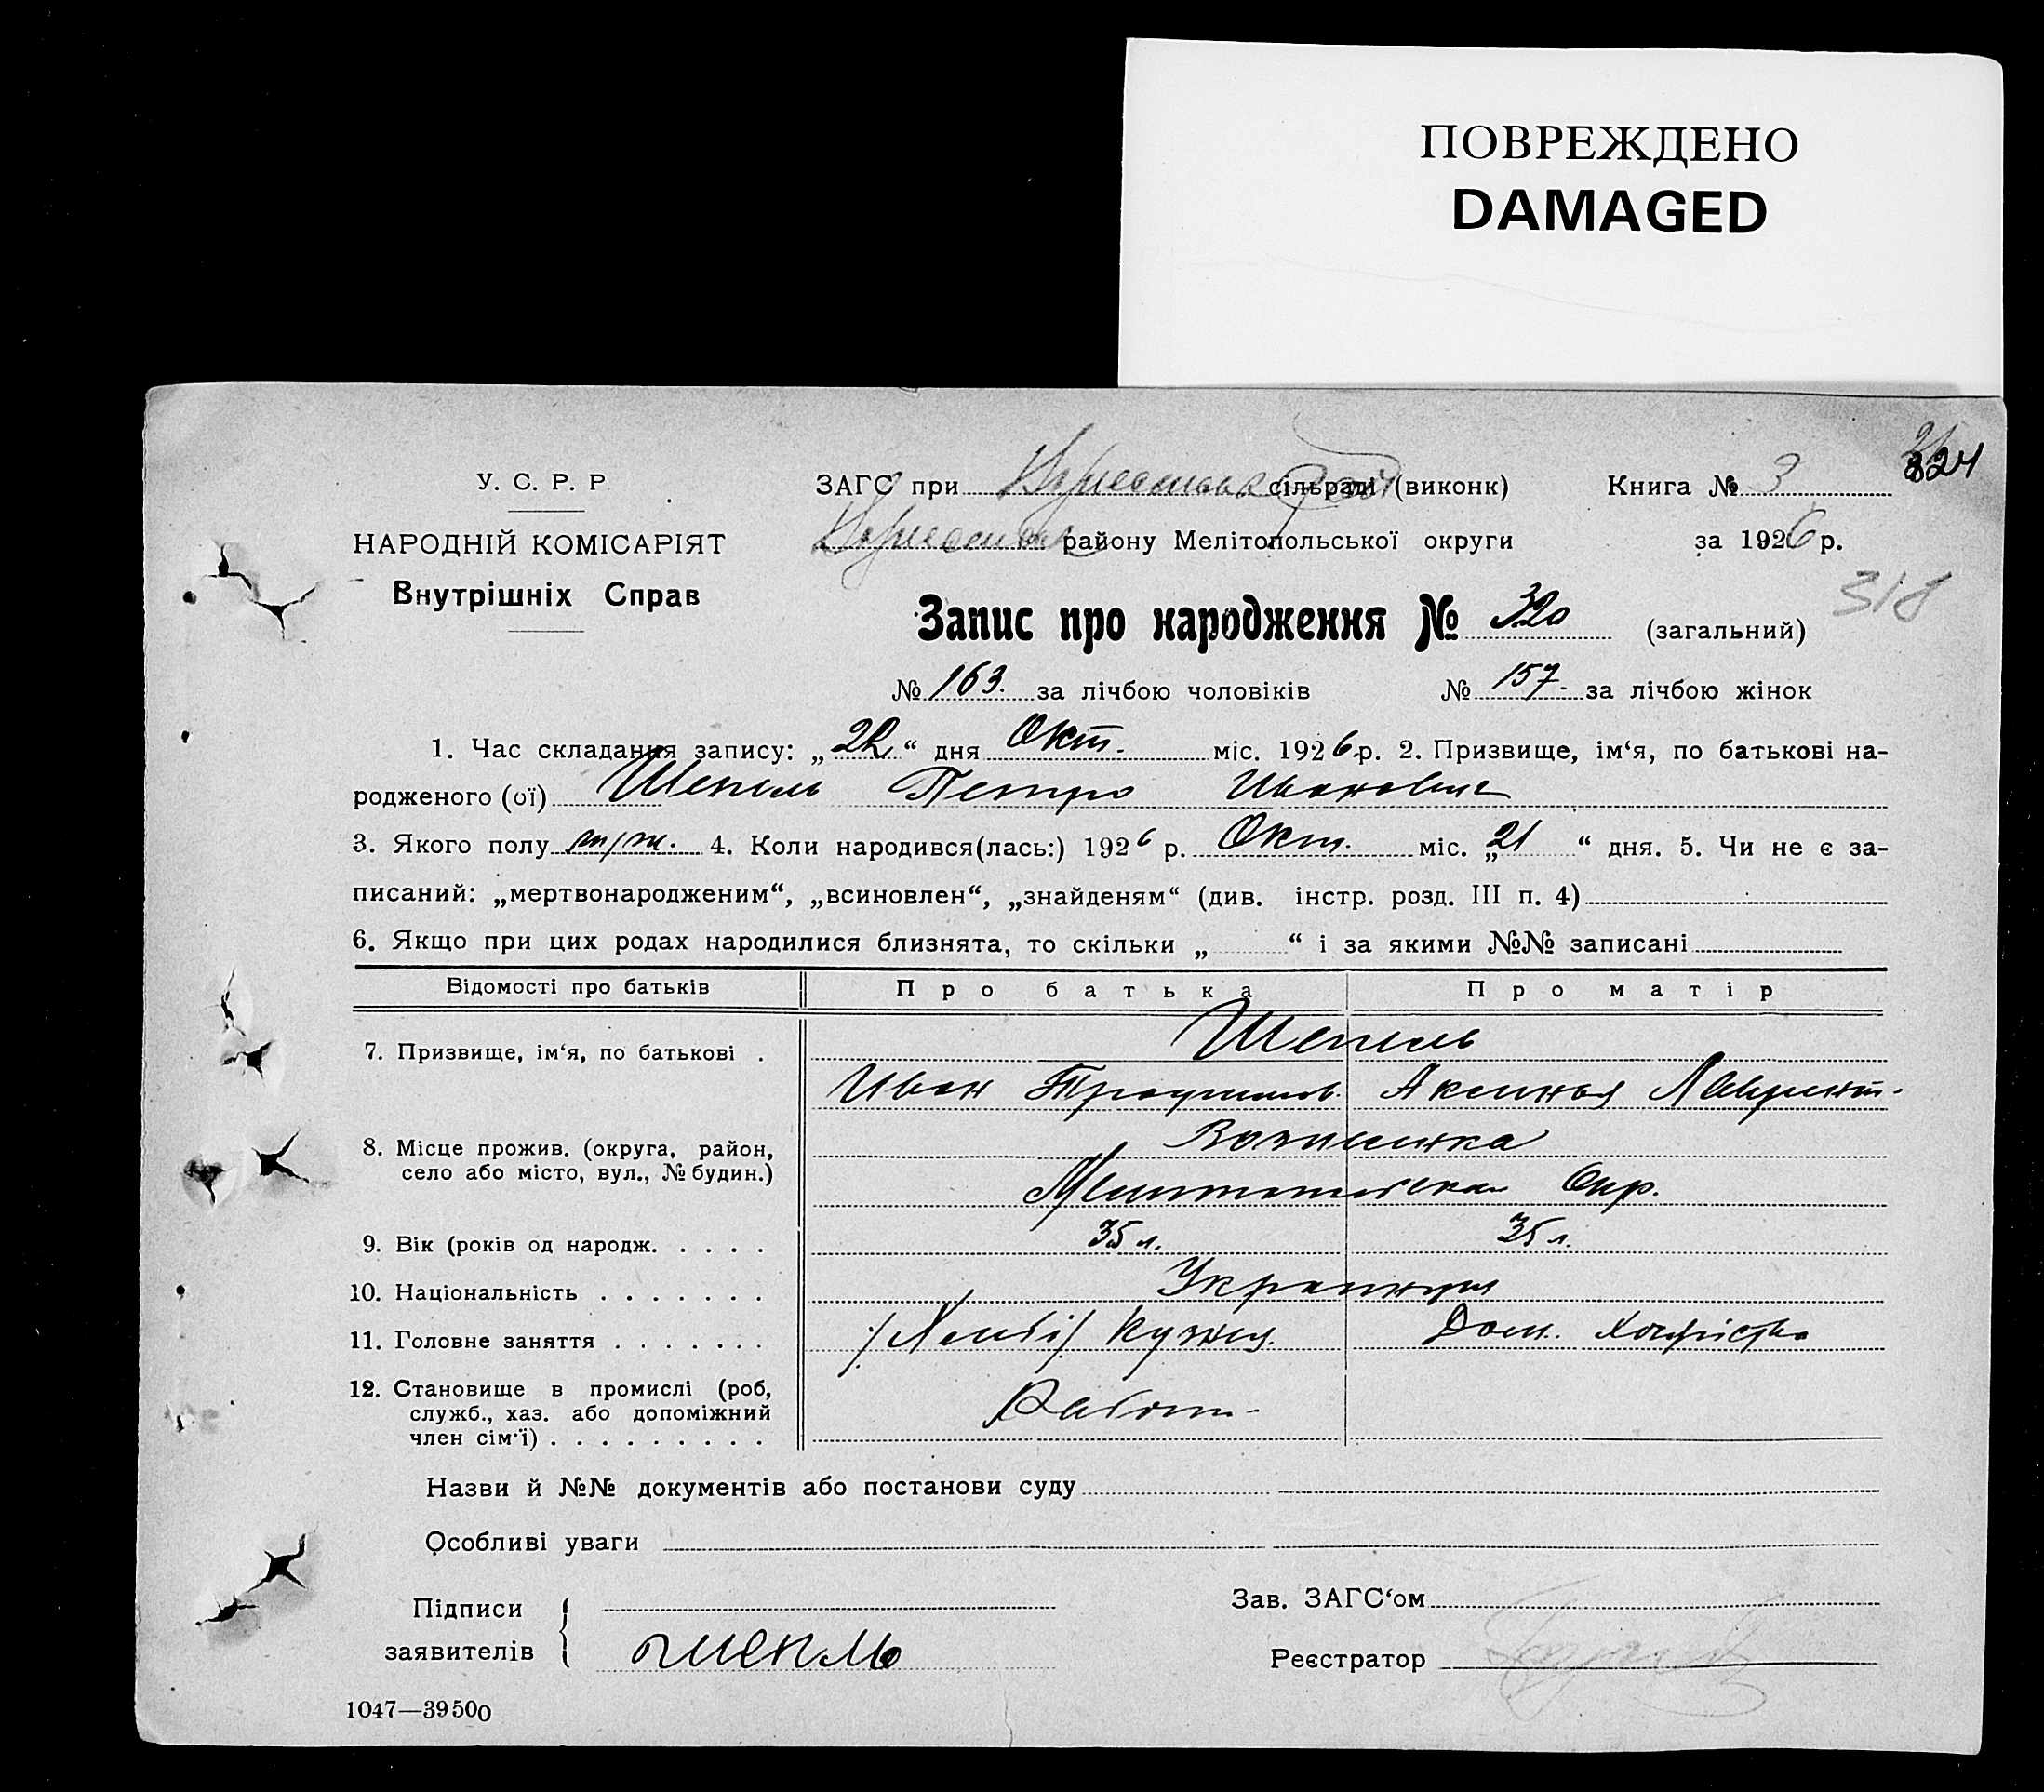 ПОВРЕЖДЕНО
DAMAGED
324
У. С. Р. Р
ЗАГС при сільради (виконк) Книга № 3
НАРОДНІЙ КОМІСАРІЯТ
району Мелітопольської округи за 1926 р.
Внутрішніх Справ
318
Запис про народження № 320 (загальний)
№ 163. за лічбою чоловіків № 157. за лічбою жінок
1. Час складання запису: „22“ дня Окт. міс. 1926 р. 2. Призвище, ім‘я, по батькові на-
родженого (ої) Шепель Петро Иванович
3. Якого полу 4. Коли народився(лась:) 1926 р. Окт. міс. „21“ дня. 5. Чи не є за-
писаний: „мертвонародженим“, „всиновлен“, „знайденям“ (див. інстр. розд. III п. 4)
6. Якщо при цих родах народилися близнята, то скільки „ “ і за якими №№ записані
Відомості про батьків Про батька Про матір
Шепель
7. Призвище, ім‘я, по батькові .
Иван Трофимов. Аксинья Лаврент.
8. Місце прожив. (округа, район,
село або місто, вул., № будин.)
Окр.
9. Вік (років од народж. . . . . 35 л. 35 л.
10. Національність . . . . . . . Украинцы
11. Головне заняття . . . . . . . Кузнец. Дом.
12. Становище в промислі (роб,
служб., хаз. або допоміжний
член сім‘ї) . . . . . . . . . Работн.
Назви й №№ документів або постанови суду
Особливі уваги
Зав. ЗАГС‘ом
Підписи
заявителів шепель
Реєстратор
1047—39500